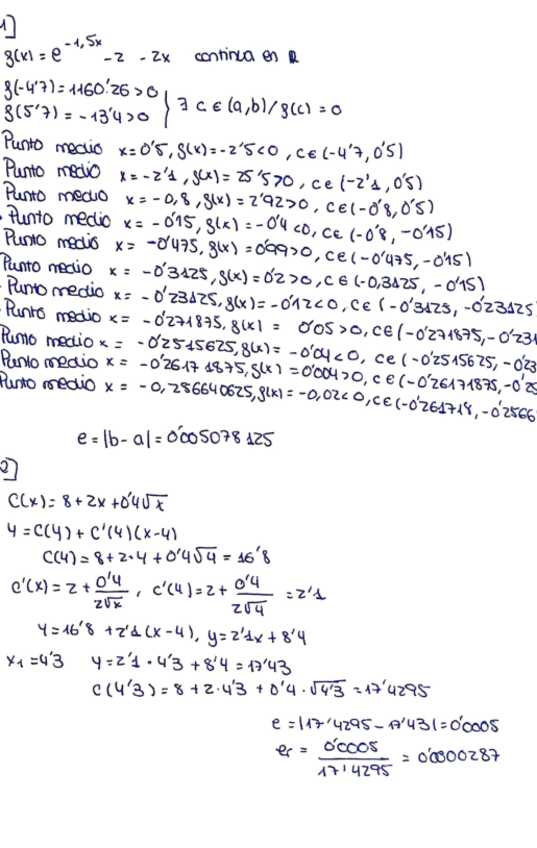 1]
g(x) = e^-1,5x - 2 - 2x continua en R
g(-4'7) = 1160'26 > 0
g(5'7) = -13'4 > 0 } ∃ c ∈ (a,b) / g(c) = 0
Punto medio x = 0'5, g(x) = -2'5 < 0, c ∈ (-4'7, 0'5)
Punto medio x = -2'1, g(x) = 25'5 > 0, c ∈ (-2'1, 0'5)
Punto medio x = -0,8, g(x) = 2'92 > 0, c ∈ (-0'8, 0'5)
Punto medio x = -0'15, g(x) = -0'4 < 0, c ∈ (-0'8, -0'15)
Punto medio x = -0'475, g(x) = 0'99 > 0, c ∈ (-0'475, -0'15)
Punto medio x = -0'3125, g(x) = 0'2 > 0, c ∈ (-0,3125, -0'15)
Punto medio x = -0'23125, g(x) = -0'12 < 0, c ∈ (-0'3125, -0'23125
Punto medio x = -0'271875, g(x) = 0'05 > 0, c ∈ (-0'271875, -0'231
Punto medio x = -0'2515625, g(x) = -0'04 < 0, c ∈ (-0'2515625, -0'23
Punto medio x = -0'26171875, g(x) = 0'004 > 0, c ∈ (-0'26171875, -0'25
Punto medio x = -0,256640625, g(x) = -0,02 < 0, c ∈ (-0'261718, -0'2566
e = |b - a| = 0'005078125
2]
C(x) = 8 + 2x + 0'4√x
y = C(4) + C'(4)(x-4)
C(4) = 8 + 2·4 + 0'4√4 = 16'8
C'(x) = 2 + 0'4/2√x, C'(4) = 2 + 0'4/2√4 = 2'1
y = 16'8 + 2'1(x-4), y = 2'1x + 8'4
x1 = 4'3 y = 2'1 · 4'3 + 8'4 = 17'43
C(4'3) = 8 + 2·4'3 + 0'4·√4'3 = 17'4295
e = |17'4295 - 17'43| = 0'0005
er = 0'0005/17'4295 = 0'0000287